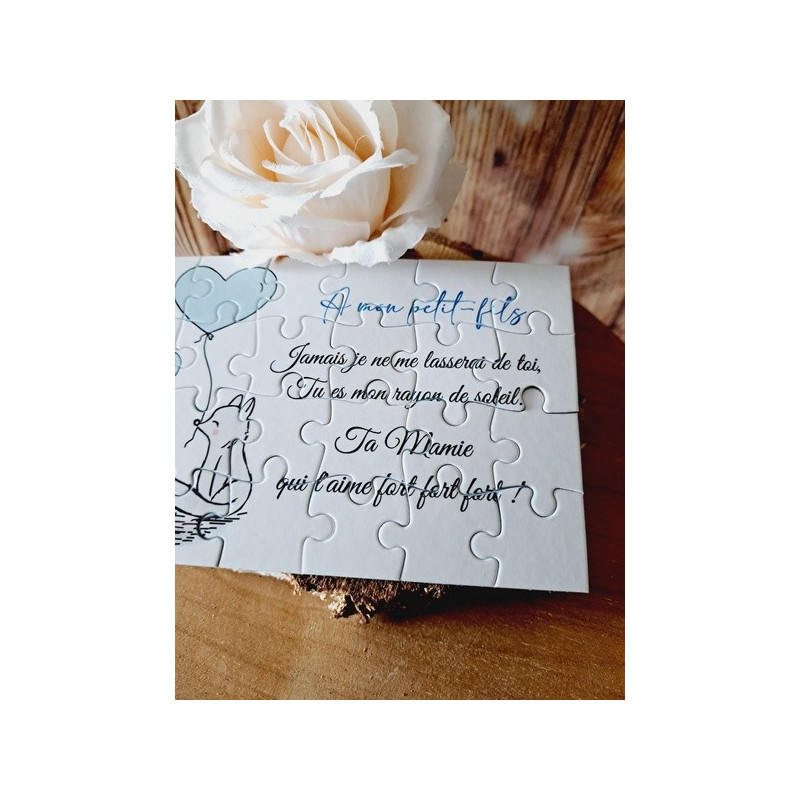 A mon petit-fils
Jamais je ne me lasserai de toi,
Tu es mon rayon de soleil.
Ta Mamie
qui t'aime fort fort fort !